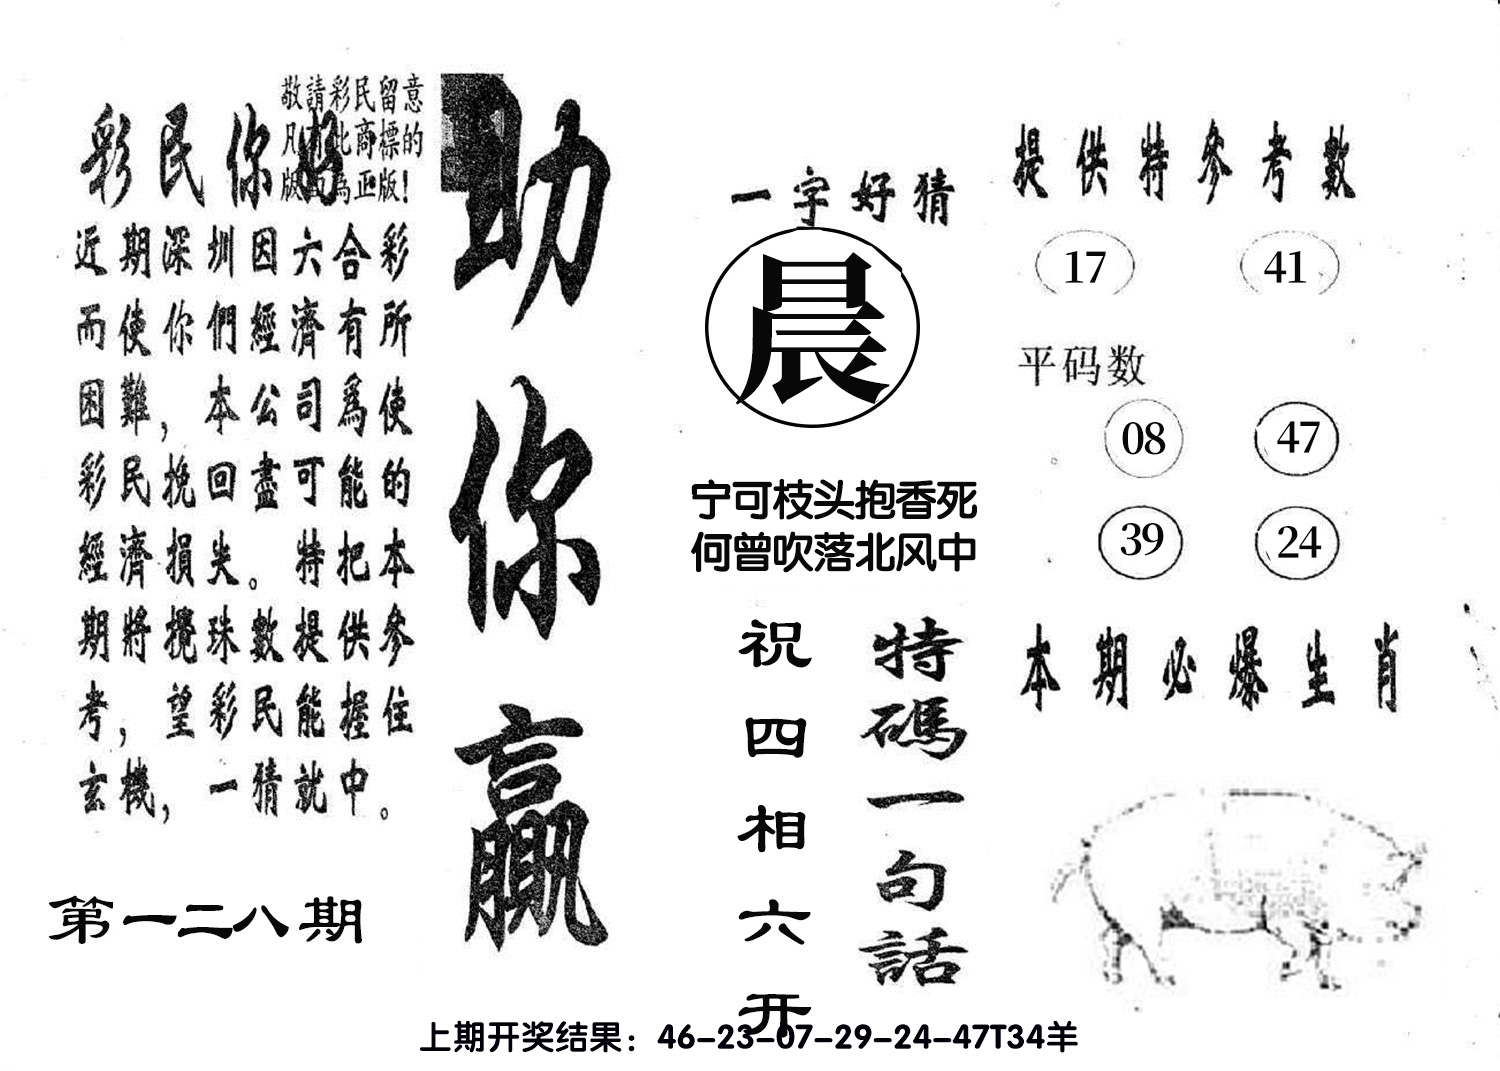 敬請彩民留意
凡有此商標的
版面為正版!
彩民你好
近期深圳因六合彩
而使你們經濟有所
困難，本公司爲使
彩民挽回盡可能的
經濟損失。特把本
期將攪珠數提供參
考，望彩民能握住
玄機，一猜就中。
第一二八期
助你贏
一字好猜
晨
宁可枝头抱香死
何曾吹落北风中
特碼一句話
祝四相六开
提供特參考數
17 41
平码数
08 47
39 24
本期必爆生肖
上期开奖结果：46-23-07-29-24-47T34羊